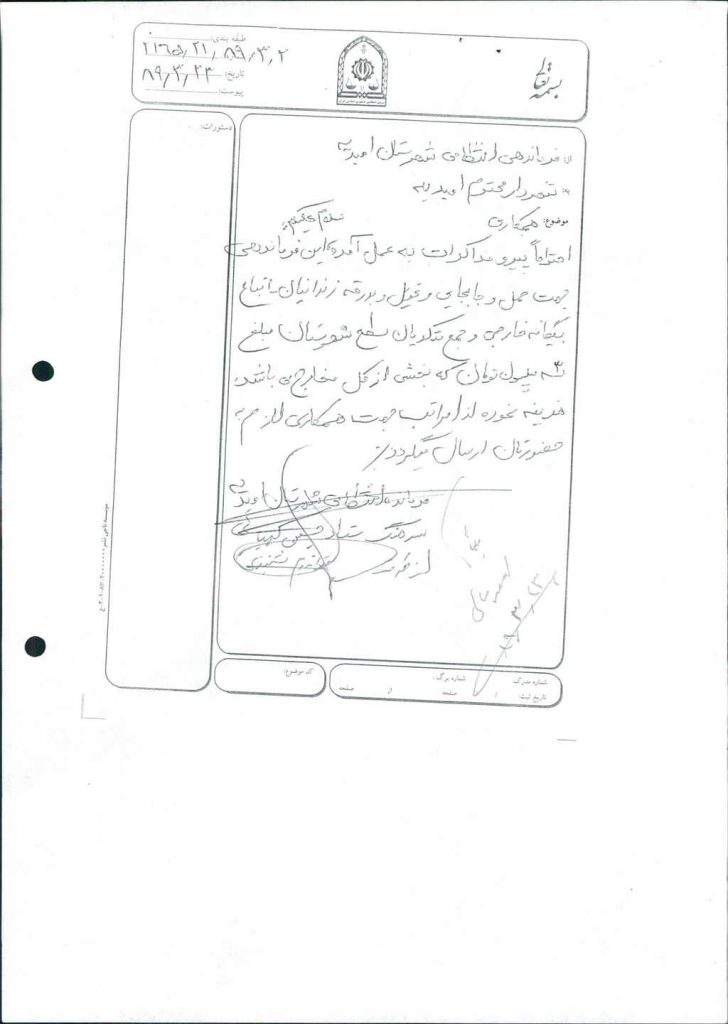 بسمه تعالی
طبقه بندی:
۲۱۶۵/۲۱/۸۹/۳/۲
تاریخ: ۸۹/۳/۲۳
پیوست:
دستورات:
از: فرماندهی انتظامی شهرستان امیدیه
به: شهردار محترم امیدیه
موضوع: همکاری
سلام علیکم
احتراماً پیرو مذاکرات به عمل آمده این فرماندهی
جهت حمل و جابجایی و تحویل و بدرقه زندانیان اتباع
بیگانه خارجی و جمع متکدیان سطح شهرستان مبلغ
۳ سه میلیون تومان که بخشی از کل مخارج می باشد
هزینه نموده لذا مراتب جهت همکاری لازم به
حضورتان ارسال میگردد
فرمانده انتظامی شهرستان امیدیه
سرهنگ ستاد حسین
از طرف
شماره مدرک:
شماره برگ:
تاریخ ثبت:
صفحه از صفحه
کد موضوع: